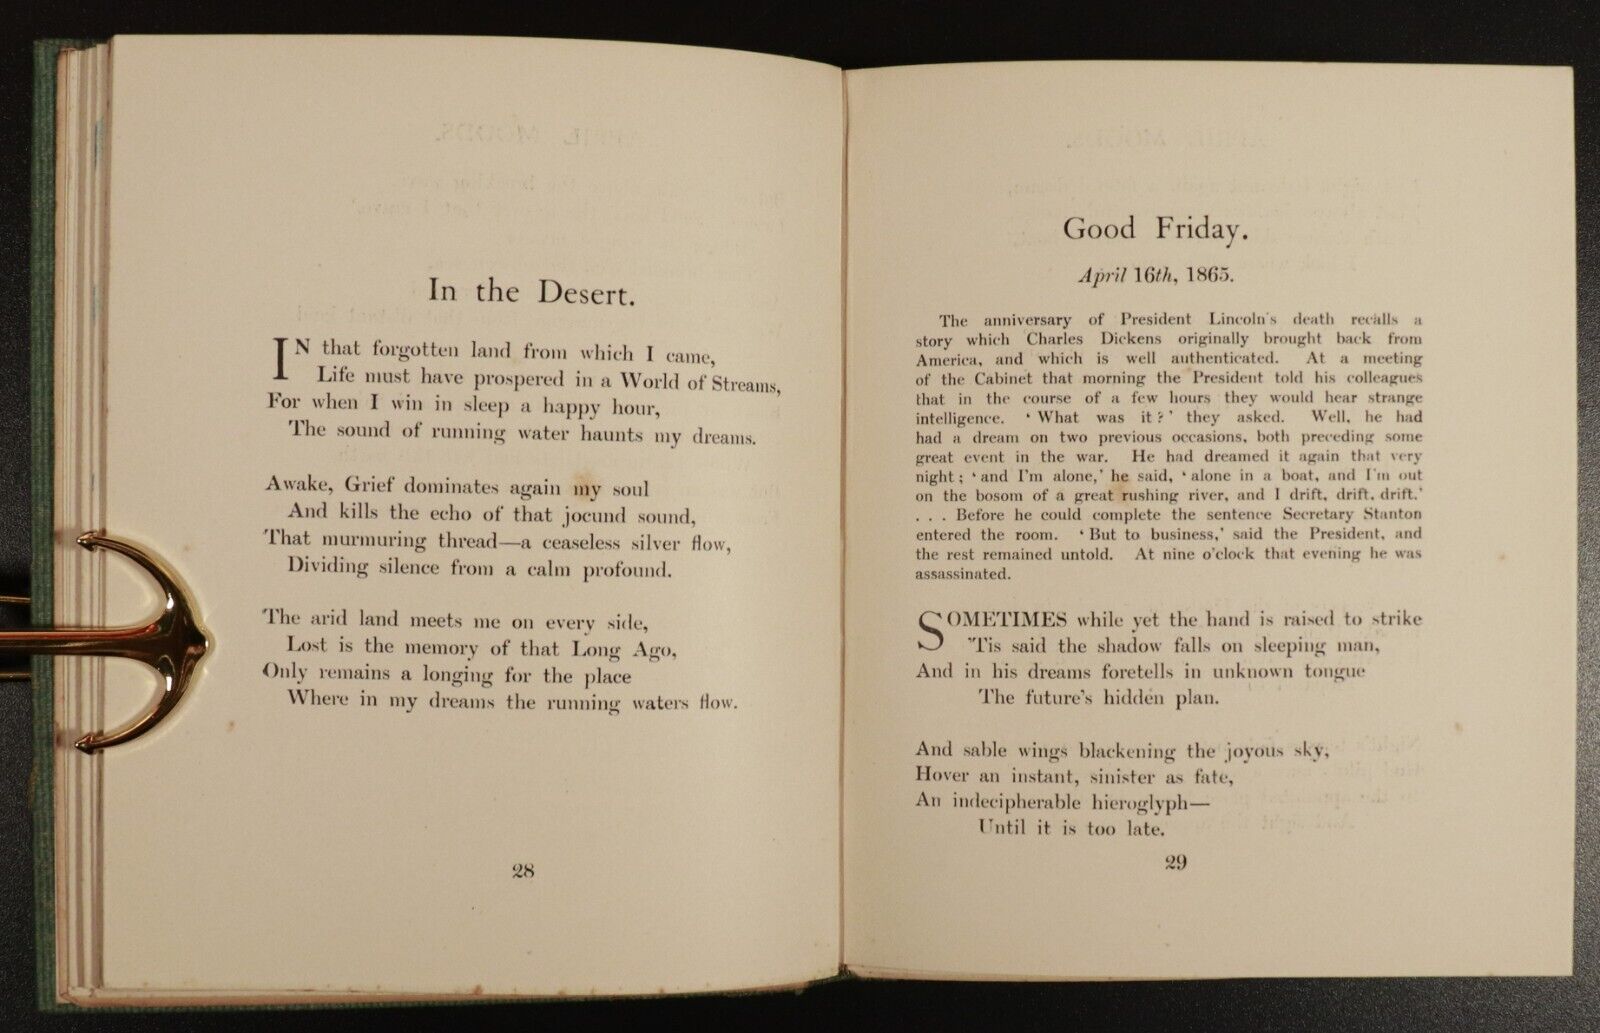 In the Desert.
IN that forgotten land from which I came,
Life must have prospered in a World of Streams,
For when I win in sleep a happy hour,
The sound of running water haunts my dreams.
Awake, Grief dominates again my soul
And kills the echo of that jocund sound,
That murmuring thread—a ceaseless silver flow,
Dividing silence from a calm profound.
The arid land meets me on every side,
Lost is the memory of that Long Ago,
Only remains a longing for the place
Where in my dreams the running waters flow.
28
Good Friday.
April 16th, 1865.
The anniversary of President Lincoln's death recalls a
story which Charles Dickens originally brought back from
America, and which is well authenticated. At a meeting
of the Cabinet that morning the President told his colleagues
that in the course of a few hours they would hear strange
intelligence. ‘What was it?’ they asked. Well, he had
had a dream on two previous occasions, both preceding some
great event in the war. He had dreamed it again that very
night; ‘and I'm alone,’ he said, ‘alone in a boat, and I'm out
on the bosom of a great rushing river, and I drift, drift, drift.’
. . . Before he could complete the sentence Secretary Stanton
entered the room. ‘But to business,’ said the President, and
the rest remained untold. At nine o'clock that evening he was
assassinated.
SOMETIMES while yet the hand is raised to strike
'Tis said the shadow falls on sleeping man,
And in his dreams foretells in unknown tongue
The future's hidden plan.
And sable wings blackening the joyous sky,
Hover an instant, sinister as fate,
An indecipherable hieroglyph—
Until it is too late.
29